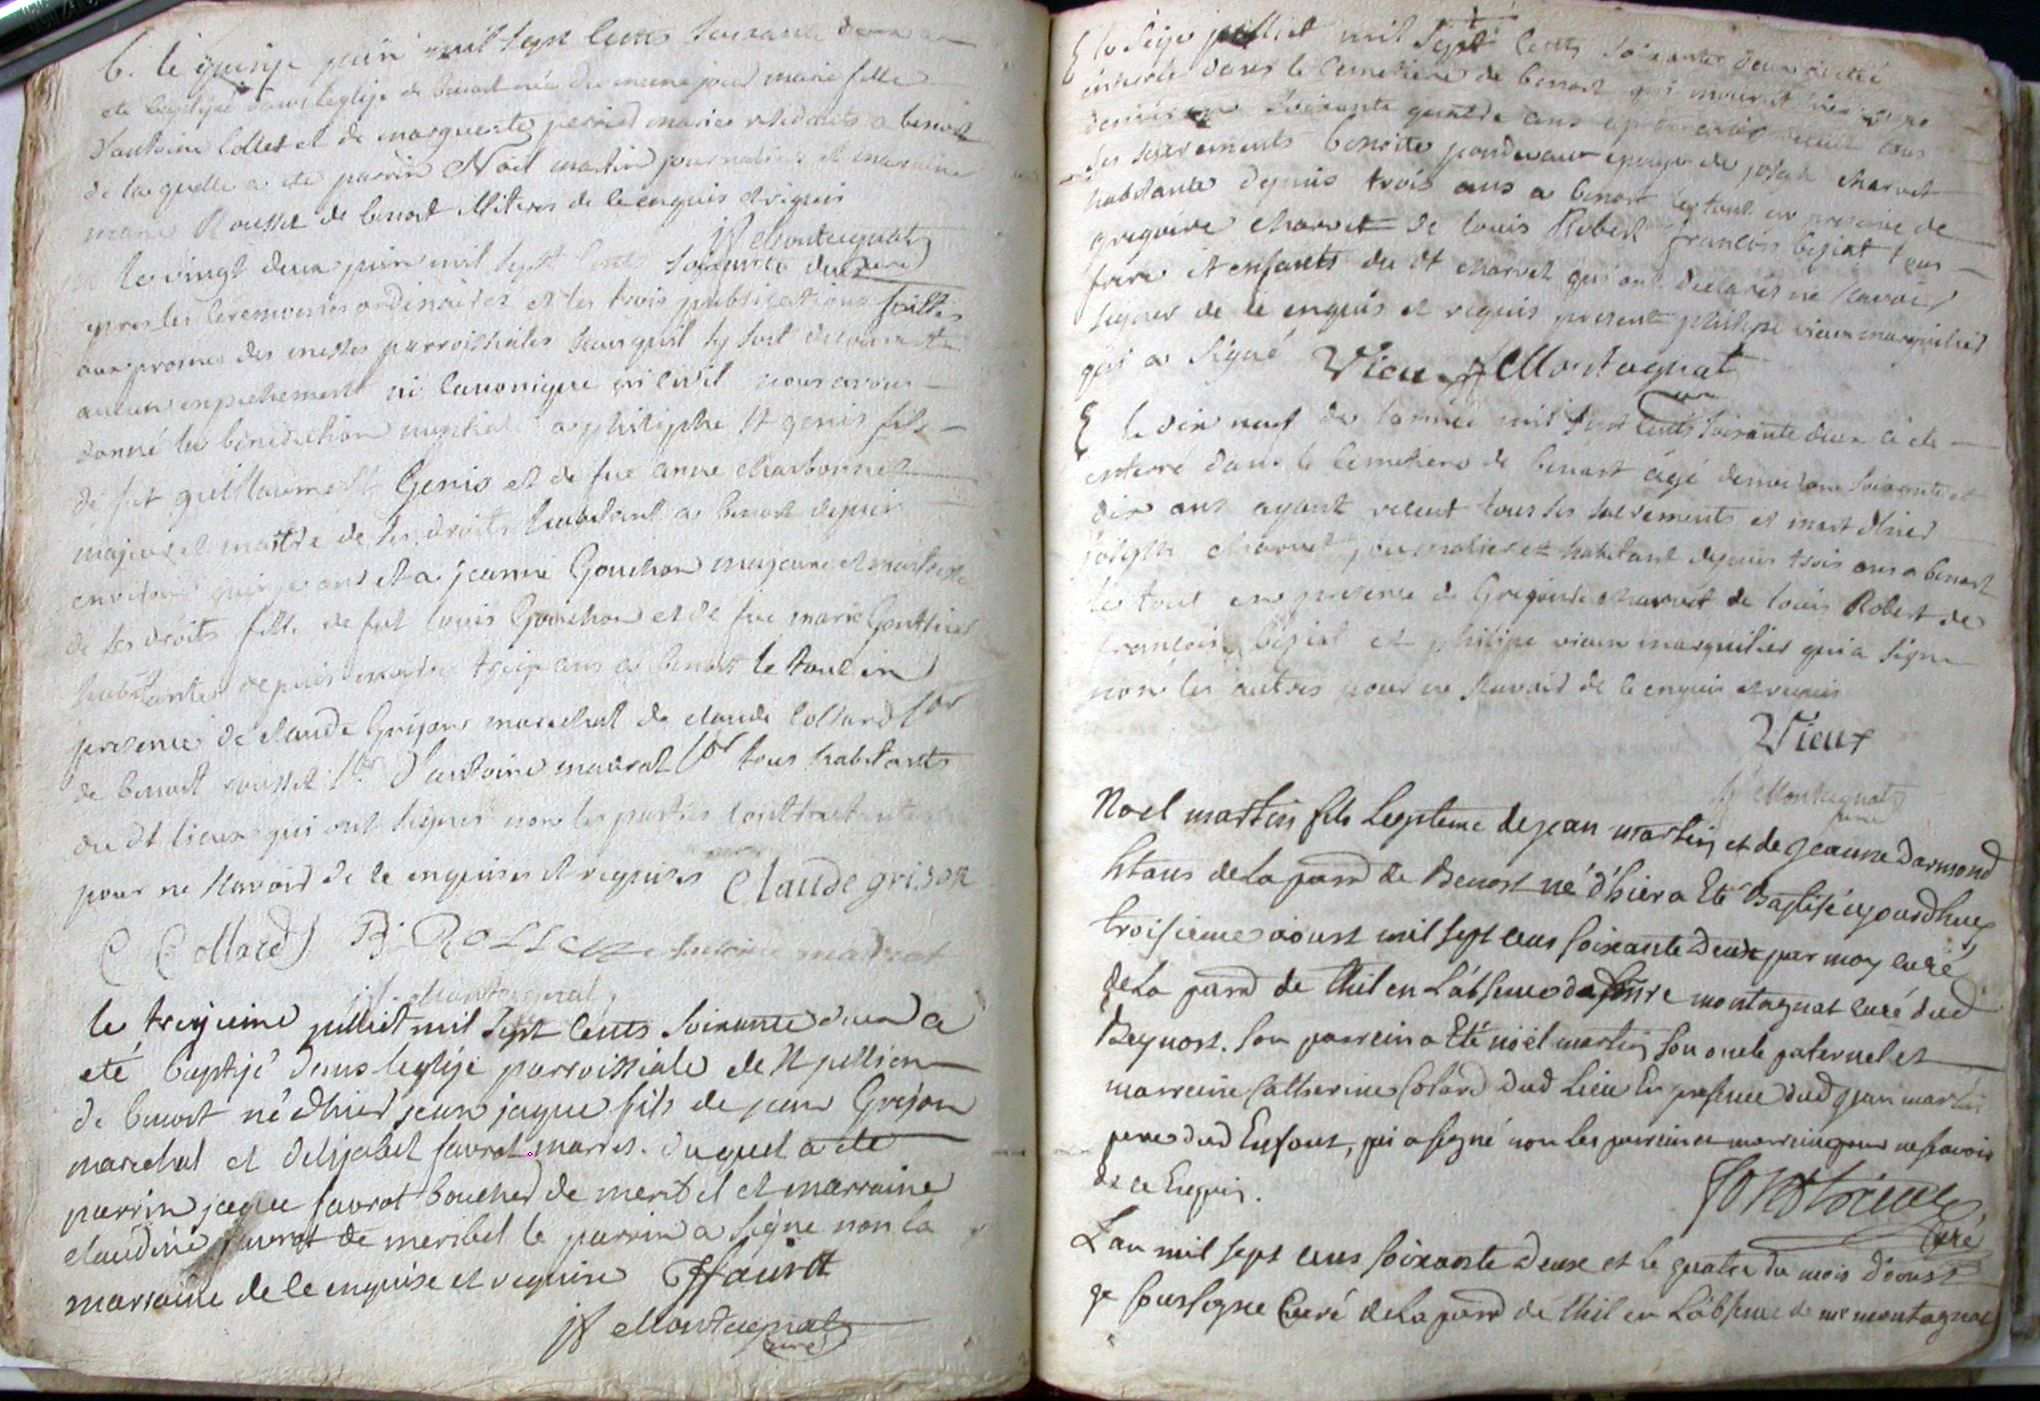 b. le quinze juin mil sept cents soixante deux a
ete baptisé dans leglise de benost née du meme jour marie fille
d'antoine Collet et de marguerite perrin mariés residents a benost
de laquelle a ete parrin Noël martin journalier et marraine
marie Rousset de benost illiteres de ce enquis et requis
JF Montagnat
le vingt deux juin mil sept cents soixante deux
apres les ceremonies ordinaires et les trois publications faittes
aux prones des messes parroissiales sans quil sy soit decouvert
aucun enpechement ni canonique ni civil nous avons
donné la benediction nuptiale a philiphe St genis fils
de fut guillaume St Genis et de fue anne charbonnet
majeur et maitre de ses droits habitant a benost depuis
environ quinze ans et a jeanne Gouchon majeure et maitresse
de ses droits fille de fut louis Gouchon et de fue marie Gonthier
habitante depuis treize ans a benost le tout en
presence de claude Grison marechal de claude Collard
de benost rousset d'antoine mavrat tous habitants
du dt lieux qui ont signés non les parties contractantes
pour ne scavoir de ce enquises et requises Claude grison
C Collard B. ROSSET antoine mavrat
JF Montagnat
le treizieme juilliet mil sept cents soixante deux a
eté baptizé dans leglise parroissiale de St pellion
de benost né dhier jean jaque fils de jean Grison
marechal et delizabet favrot mariés. duquel a ete
parrin jaque favrot boucher de meribel et marraine
claudine favrot de meribel le parrin a signe non la
marraine de ce enquise et requise JFfavrot
JF Montagnat
curé
le seize juilliet mil sept cents soixante deux a eté
enterée dans le cemetiere de benost qui mourut hier agée
denviron soixante quinze ans apres avoir receut tous
les sacrements benoite pondevaux epouse de joseph charvet
habitante depuis trois ans a benost le tout en presence de
gregoire charvet de louis Robert françois beziat tous
frere et enfants du dt charvet qui ont declarés ne scavoir
signer de ce enquis et requis present philipe vieux marguilier
qui a signé Vieux JF Montagnat
le dix neuf de lannée mil sept cents soixante deux a ete
enterré dans le cemetiere de benost agé denviron soixante et
dix ans ayant receut tous les sacrements et mort dhier
joseph charvet journalier et habitant depuis trois ans a benost
le tout en presence de Gregoire charvet de louis Robert de
françois beziat et philipe vieux marguilier qui a signe
non les autres pour ne scavoir de ce enquis et requis
Vieux
JF Montagnat
curé
Noel martin fils legitime de jean martin et de jeanne Darmond
htans de la parr de Benost né d'hier a Eté Baptisé aujourdhuy
troisieme aoust mil sept cens soixante Deux par moy curé
de la parr de thil en L'absence de messire montagnat curé dud
Beynost. son parrein a Eté noël martin son oncle paternel et
marreine Catherine Colard dud Lieu En presence dud jean martin
pere dud Enfant, qui a signé non les parrein et marreine pour ne scavoir
de ce Enquis.
Curé
L'an mil sept cens soixante Deux et le quatre du mois d'aoust
je soussigné Curé de la parr de thil en L'absence de mr montagnat